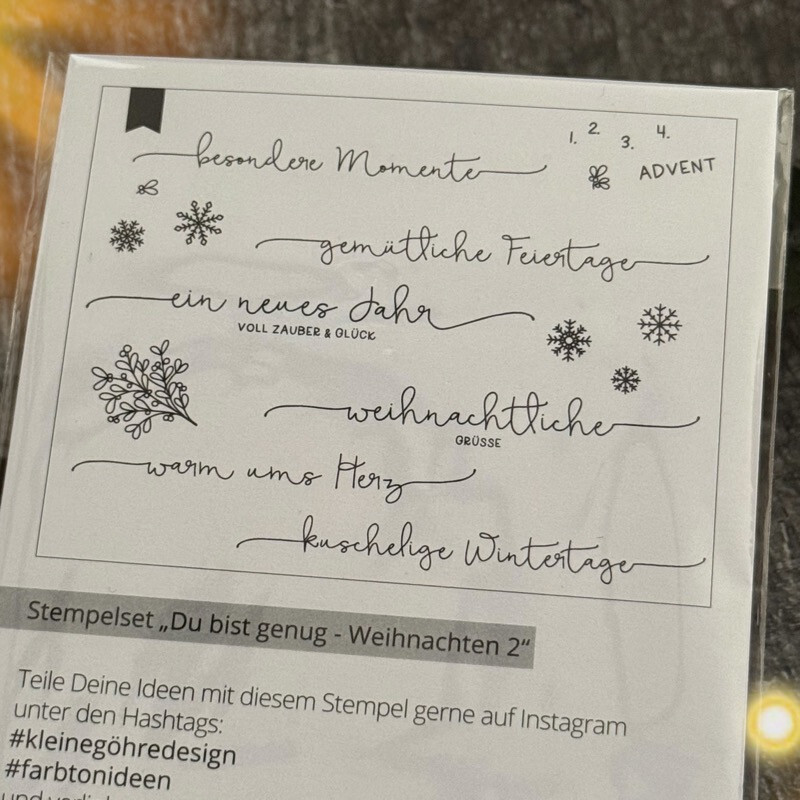 besondere Momente
1. 2. 3. 4.
ADVENT
gemütliche Feiertage
ein neues Jahr
VOLL ZAUBER & GLÜCK
weihnachtliche
GRÜSSE
warm ums Herz
kuschelige Wintertage
Stempelset „Du bist genug - Weihnachten 2“
Teile Deine Ideen mit diesem Stempel gerne auf Instagram
unter den Hashtags:
#kleinegöhredesign
#farbtonideen
und